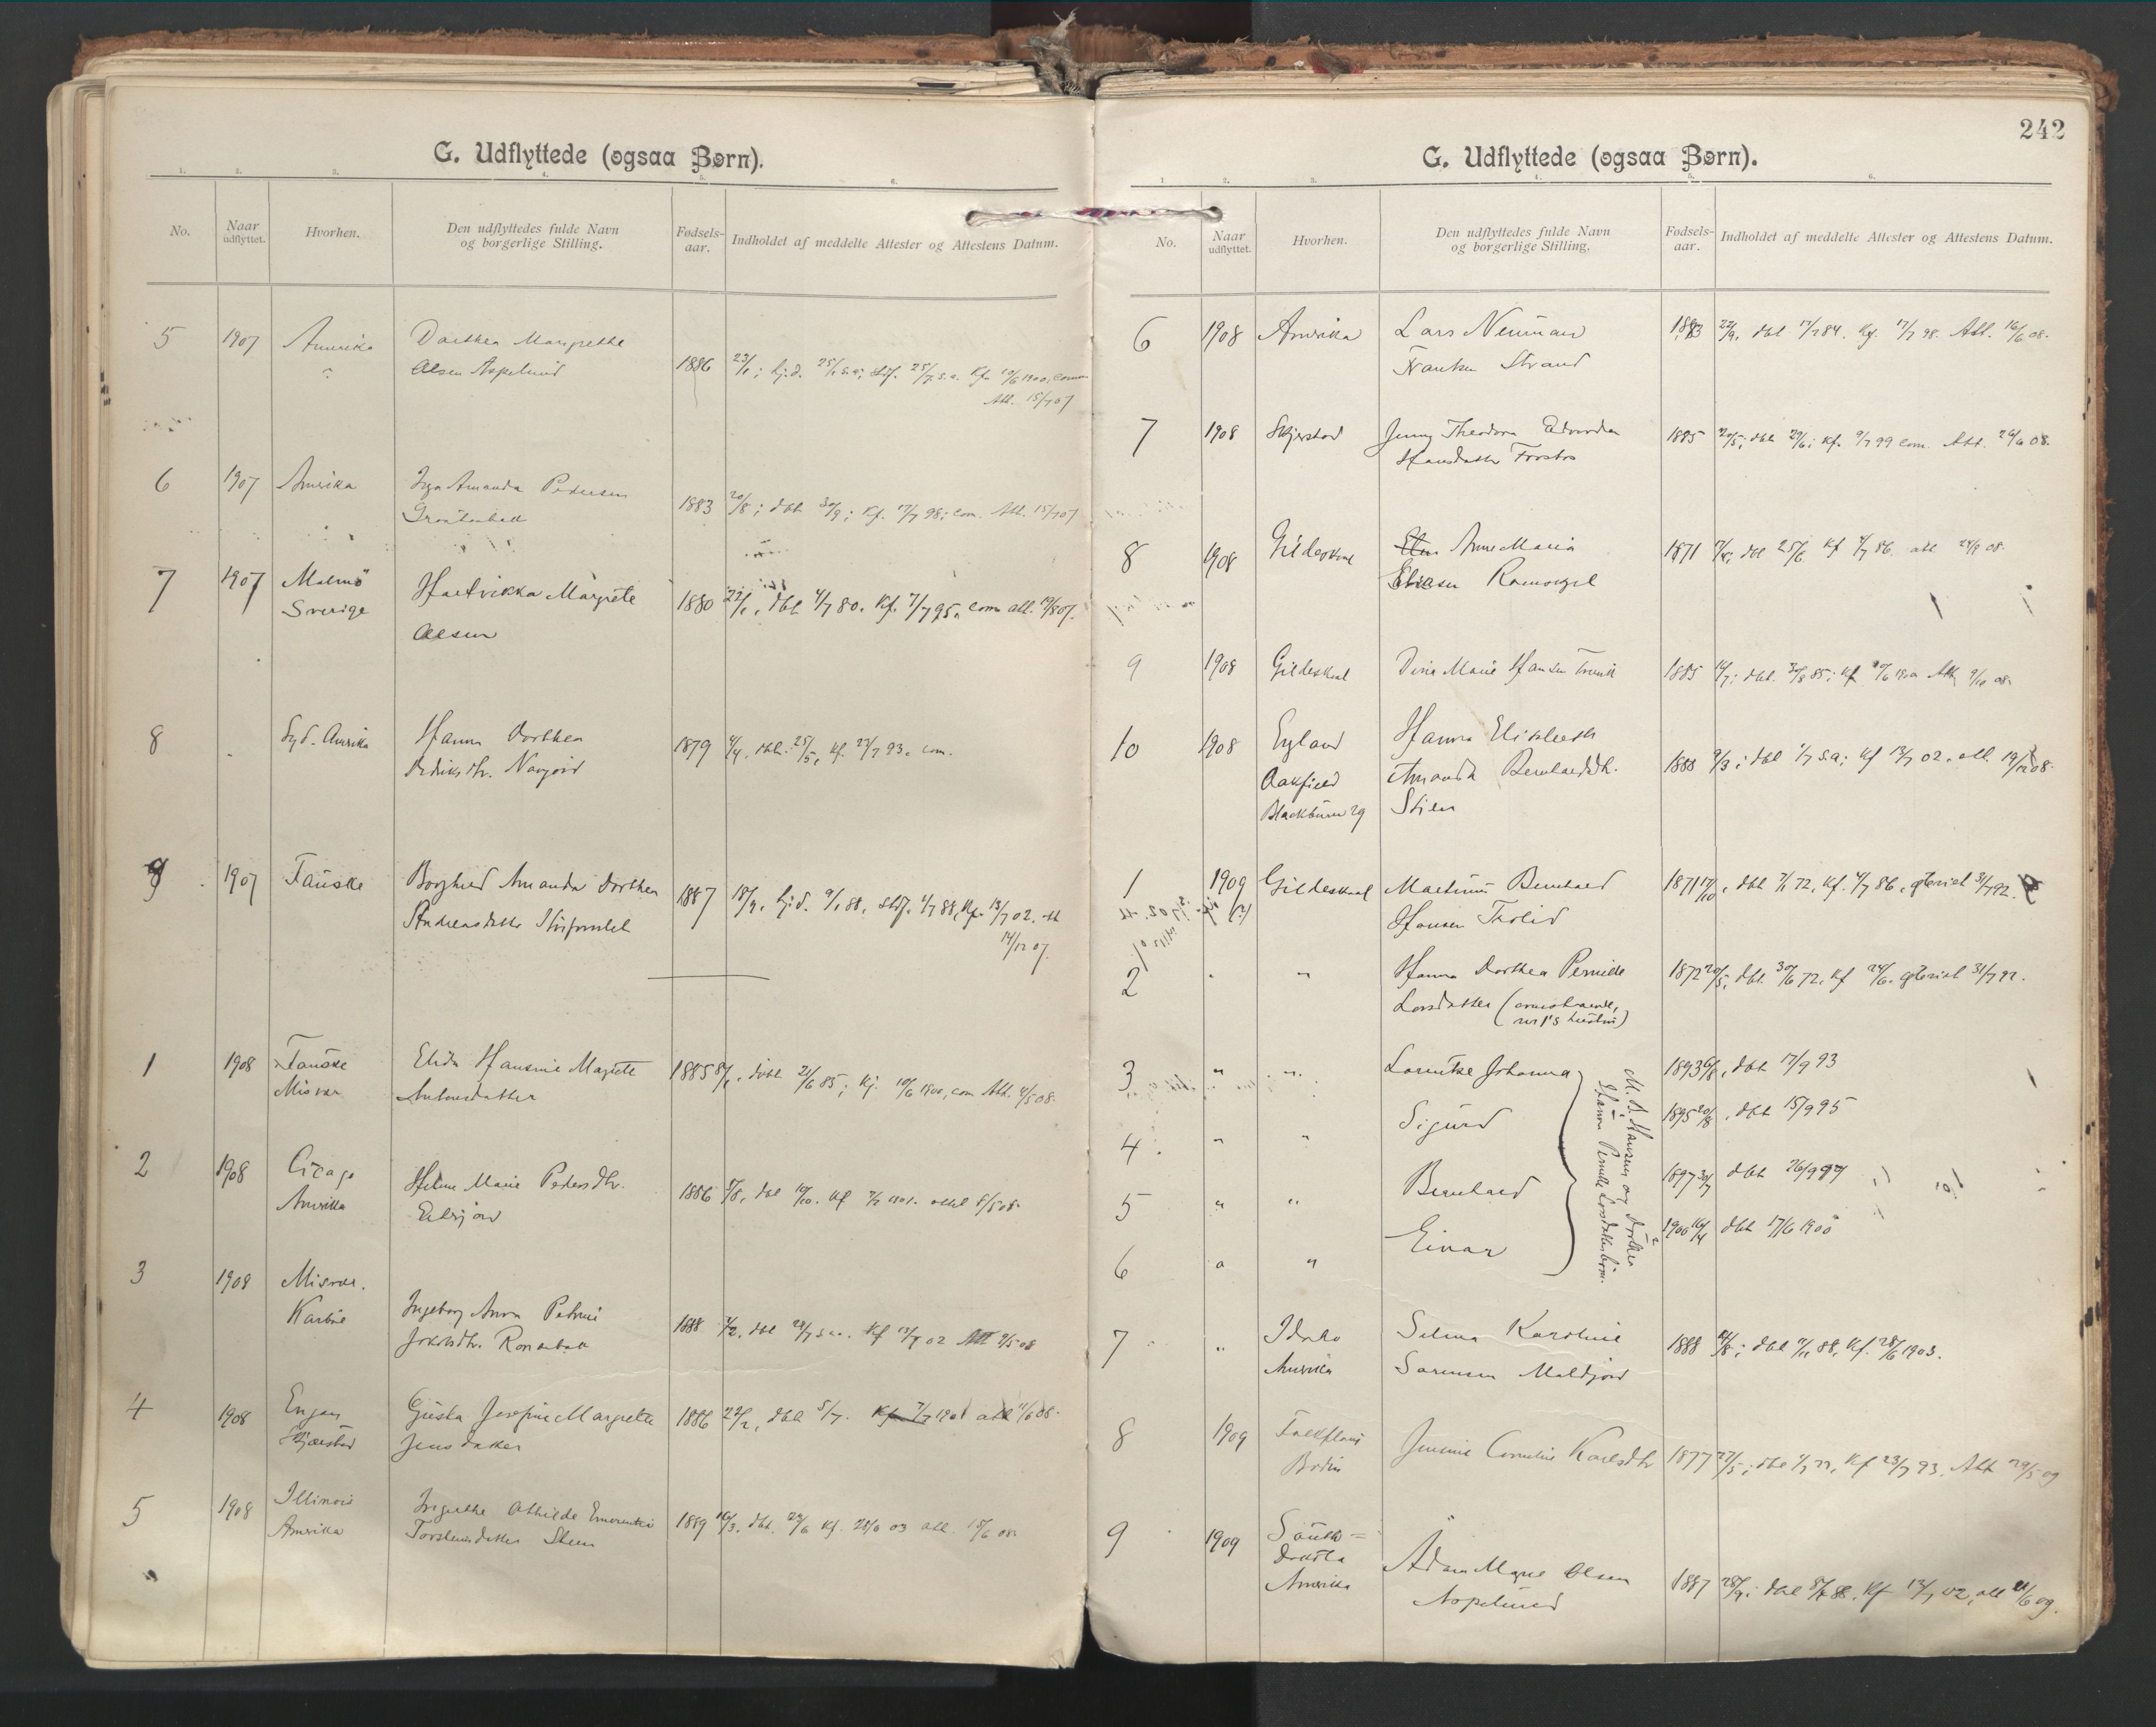 G. Udflyttede (ogsaa Børn).
1. 2. 3. 4. 5. 6.
No.
Naar udflyttet.
Hvorhen.
Den udflyttedes fulde Navn og borgerlige Stilling.
Fødsels-aar.
Indholdet af meddelte Attester og Attestens Datum.
5 1907 Amerika Dorthea Margrethe
Olsen Aspelund 1886 23/1; hj.d. 25/1 s.a; stf. 25/7 s.a. Kf. 10/6 1900, com
Att. 15/7 07
6 1907 Amerika Inga Amanda Pedersen
1883 20/8; dbt 30/9; Kf. 17/7 98; com. Att. 15/7 07
7 1907 Malmö Hartvikka Margrete
Sverige Olsen 1880 22/1, dbt 4/7 80. Kf. 7/7 95. com att. 19/8 07.
8 Syd. Amerika Hanna Dorthea
Navjord 1879 4/4, dbt. 25/5, Kf. 23/7 93. com.
9 1907 Fauske Borghild Amanda Dorthea
Andreasdatter 1887 18/9, hj.d. 9/1 88, stf. 1/7 88, Kf. 13/7 02. att
14/12 07.
1 1908 Fauske Elida Hansine Magrete
Misvær Antonsdatter 1885 8/1, døbt 21/6 85; Kf. 10/6 1900, com Att. 4/5 08.
2 1908 Cicago Helene Marie Pedersdtr.
Amerika 1886 5/8, dbt 10/10. Kf 7/7 1901. att 8/5 08.
3 1908 Misvær. Ingeborg Anna Petrine
1888 2/2, dbt 29/7 s.a. Kf 13/7 02 Att 9/5 08
4 1908 Engan Gusta Josefine Margrete
Skjerstad Jensdatter 1886 22/2, dbt 5/7. Kf. 7/7 1901 att 11/6 08.
5 1908 Illinois Ingertha Othilde Emerentse
Amerika Torsteinsdatter Steen 1889 16/3. dbt. 24/6 Kf. 28/6 03 att. 15/6 08.
242
G. Udflyttede (ogsaa Børn).
1. 2. 3. 4. 5. 6.
No.
Naar udflyttet.
Hvorhen.
Den udflyttedes fulde Navn og borgerlige Stilling.
Fødsels-aar.
Indholdet af meddelte Attester og Attestens Datum.
6 1908 Amerika Lars Neuman 1883 22/9. dbt 17/7 84. Kf. 17/7 98. Att. 16/6 08.
Strand
7 1908 Skjerstad Jenny Theodora 1885 20/5; dbt 29/6; Kf. 9/7 99 com. Att. 26/6 08.
Hansdatter
8 1908 Gildeskaal Anne Maria 1871 dbt 25/6 Kf 4/7 86. att 24/9 08.
Eliasen
9 1908 Gildeskaal Dina Marie Hansen 1885 14/7; dbt. 30/8 85; Kf 10/6 1900 Att 9/10 08.
10 1908 England Hanna Elisabeth
Oakfield Amanda Bernhardsdtr. 1888 9/3; dbt 1/7 s.a; Kf 13/7 02, att. 19/12 08.
Blackburn 29 Stien
1 1909 Gildeskaal Martinus Bernhard 1871 17/10, dbt 7/1 72, Kf. 4/7 86, gterviet 31/7 92.
Hansen
2 " Hanna Dorthea Pernille 1872 20/5, dbt 30/6 72, Kf 24/6. gterviet 31/7 92.
Larsdatter (
nr 1's hustru)
3 " " Lorentse Johanna 1893 6/8, dbt 17/9 93
4 " " Sigurd 1895 20/8, dbt 15/9 95
5 " " Bernhard 1897 30/7 dbt 26/9 97
6 " " Einar 1900 16/4 dbt 17/6 1900
M. B. Hansens og Dorthea
Hanna Pernille Larsdatters børn.
7 " Idaho Selma Karoline
Amerika Sørensen Moldjord 1888 dbt 11/11 88, Kf. 28/6 1903.
8 1909 Jensine Cornelie Karlsdtr 1877 27/5; dbt 1/7 77, Kf 23/7 93, Att 29/5 09
Bodin
9 1909 South=
Dakota
Amerika Adana Marie Olsen
Aspelund 1887 28/9; dbt 8/1 88. Kf 13/7 02, att 21/6 09.